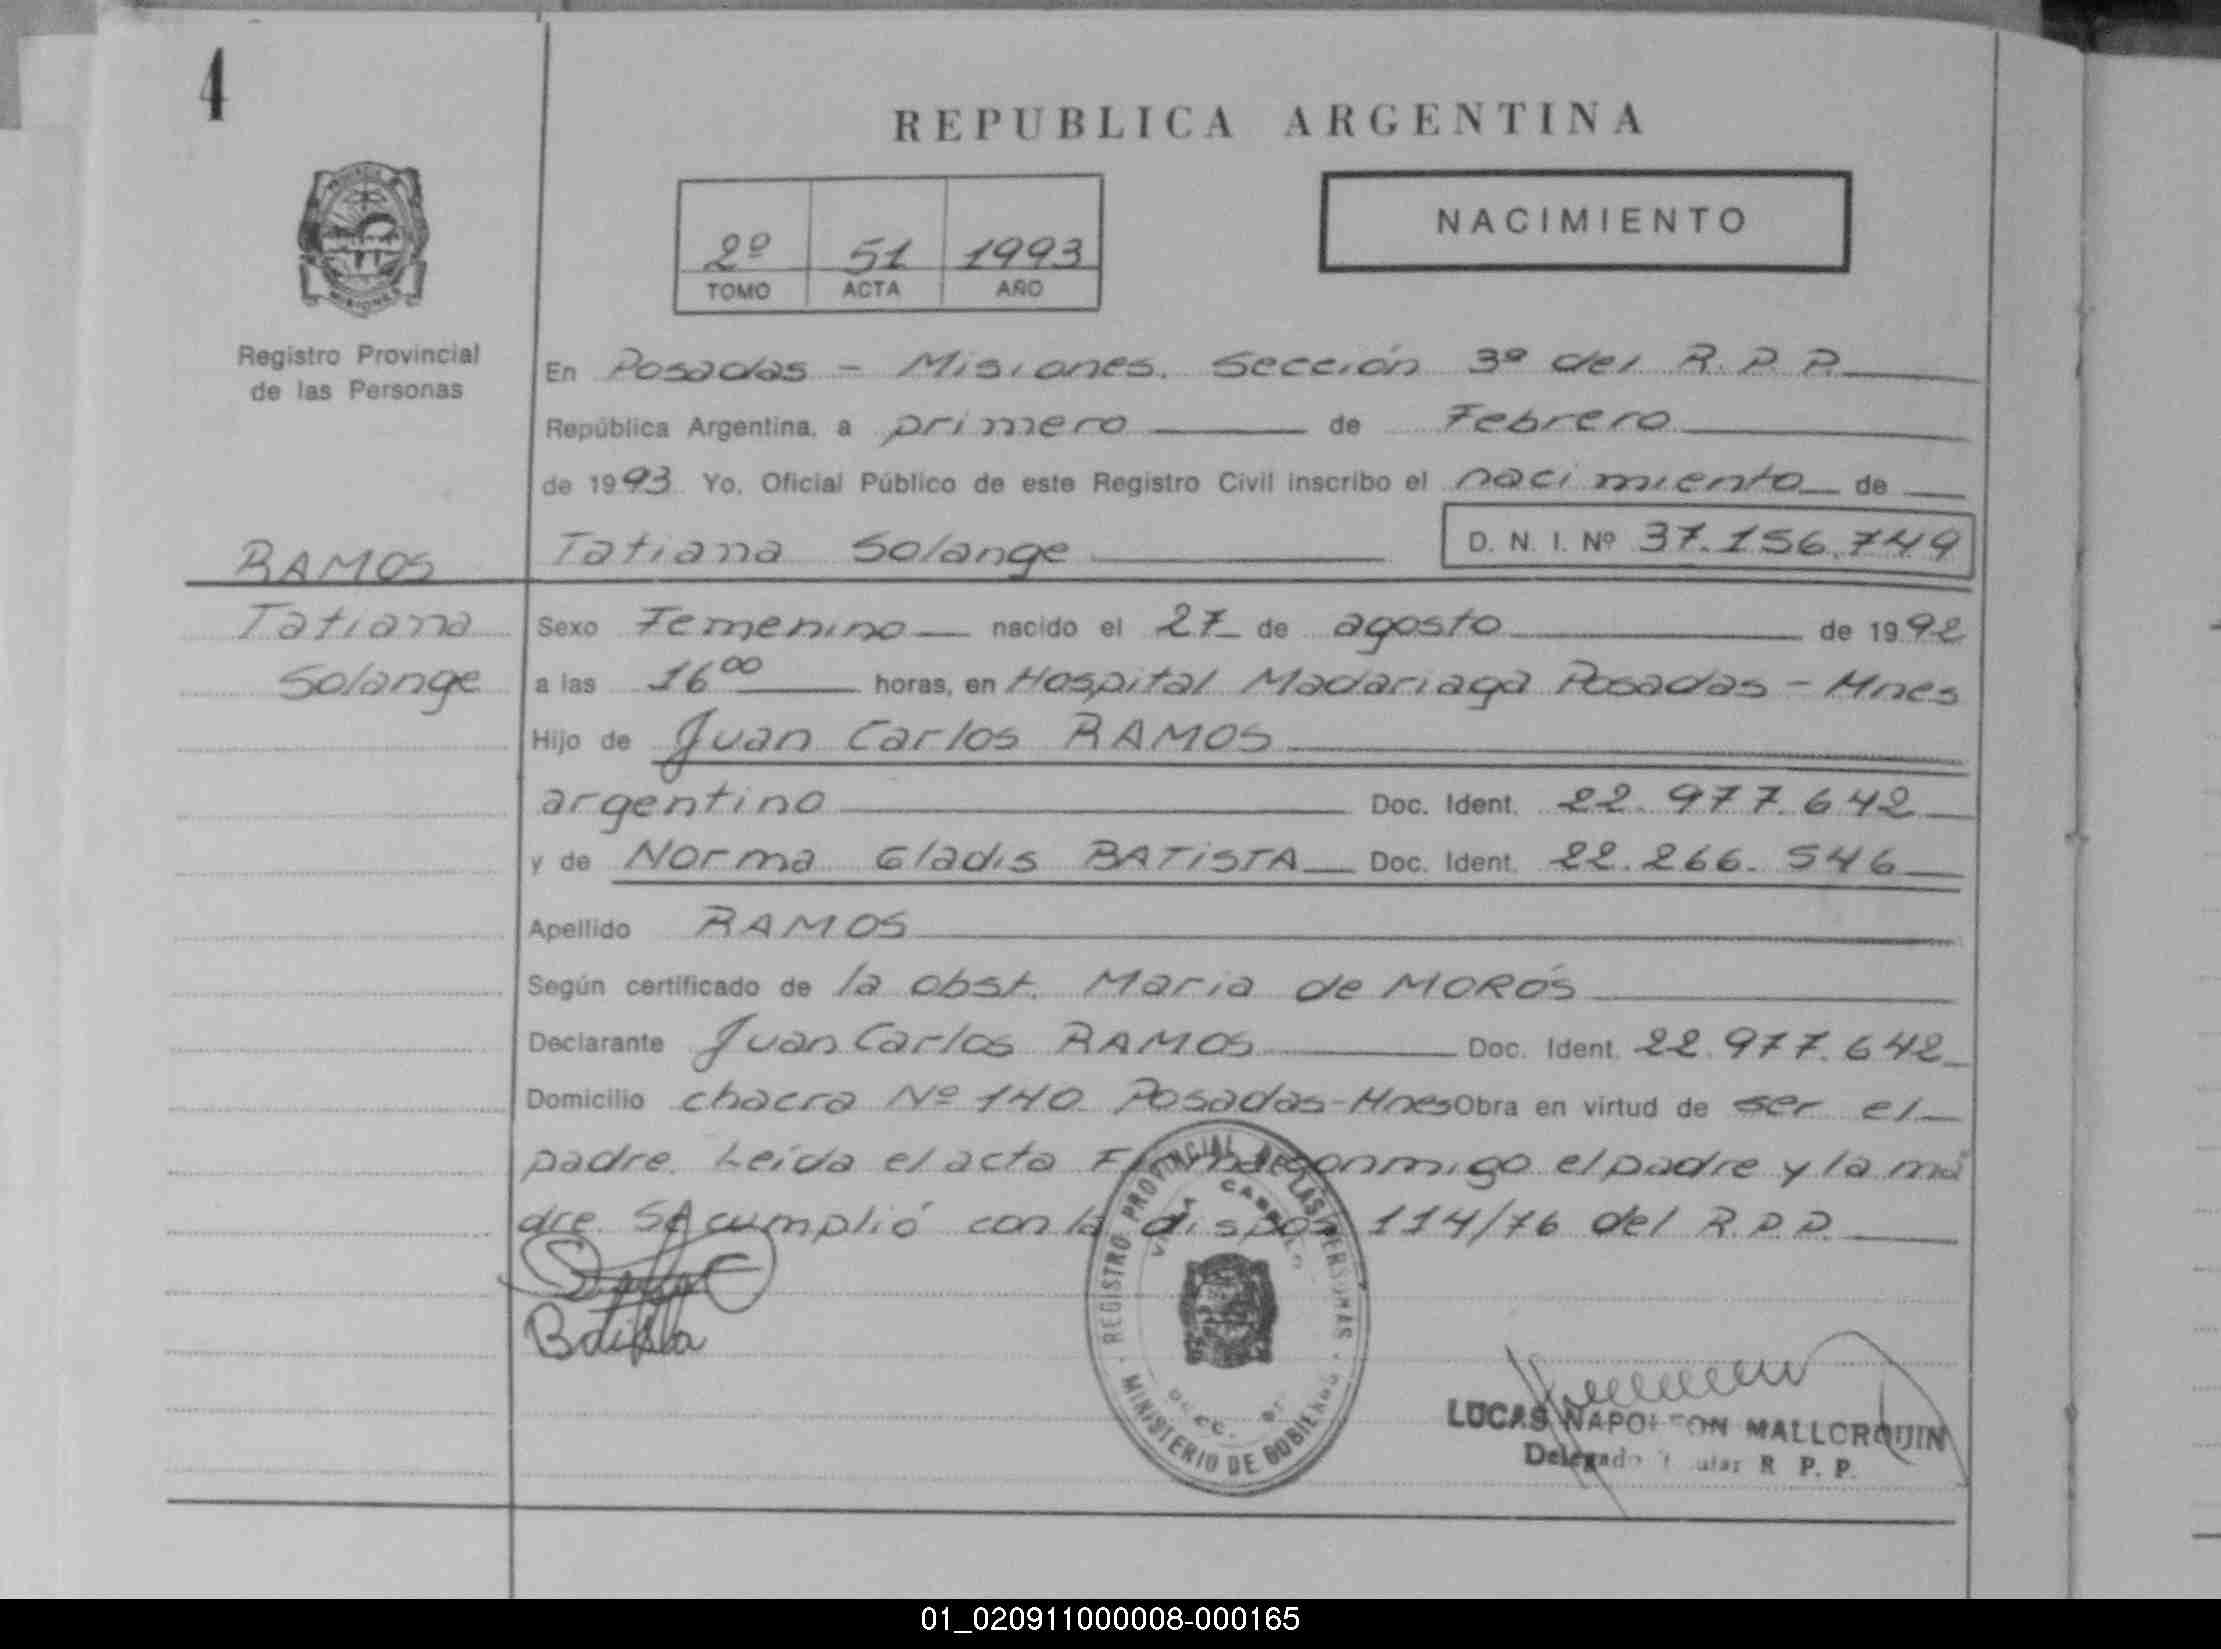 4
REPUBLICA ARGENTINA
NACIMIENTO
2º 51 1993
TOMO ACTA AÑO
Registro Provincial
de las Personas
En Posadas - Misiones. Sección 3º del R.P.P.
República Argentina, a primero de Febrero
de 1993 Yo, Oficial Público de este Registro Civil inscribo el nacimiento de
RAMOS
Tatiana Solange D. N. I. Nº 37.156.749
Tatiana
Solange
Sexo Femenino nacido el 27 de agosto de 1992
a las 16 00 horas, en Hospital Madariaga Posadas - Mnes
Hijo de Juan Carlos RAMOS
argentino Doc. Ident. 22.977.642
y de Norma Gladis BATISTA Doc. Ident. 22.266.546
Apellido RAMOS
Según certificado de la obst. Maria de MORÓS
Declarante Juan Carlos RAMOS Doc. Ident. 22.977.642
Domicilio chacra Nº 140 Posadas-Mnes Obra en virtud de ser el
padre. Leída el acta conmigo el padre y la ma
dre. Se cumplió con la dispos 114/76 del R.P.P.
Batista
REGISTRO PROVINCIAL DE LAS PERSONAS
MINISTERIO DE GOBIERNO
LUCAS NAPOLEON MALLORQUIN
Delegado R P. P.
01_020911000008-000165